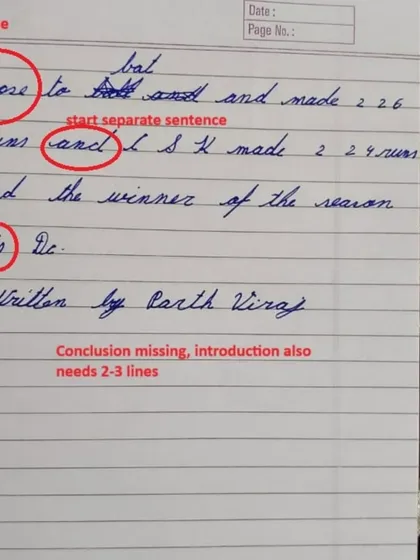 Date :
Page No. :
e
bat
ose to and and made 2 2 6
start separate sentence
ns and C S K made 2 2 4 runs
d the winner of the reason
s Dc.
Written by Parth Viraj
Conclusion missing, introduction also
needs 2-3 lines